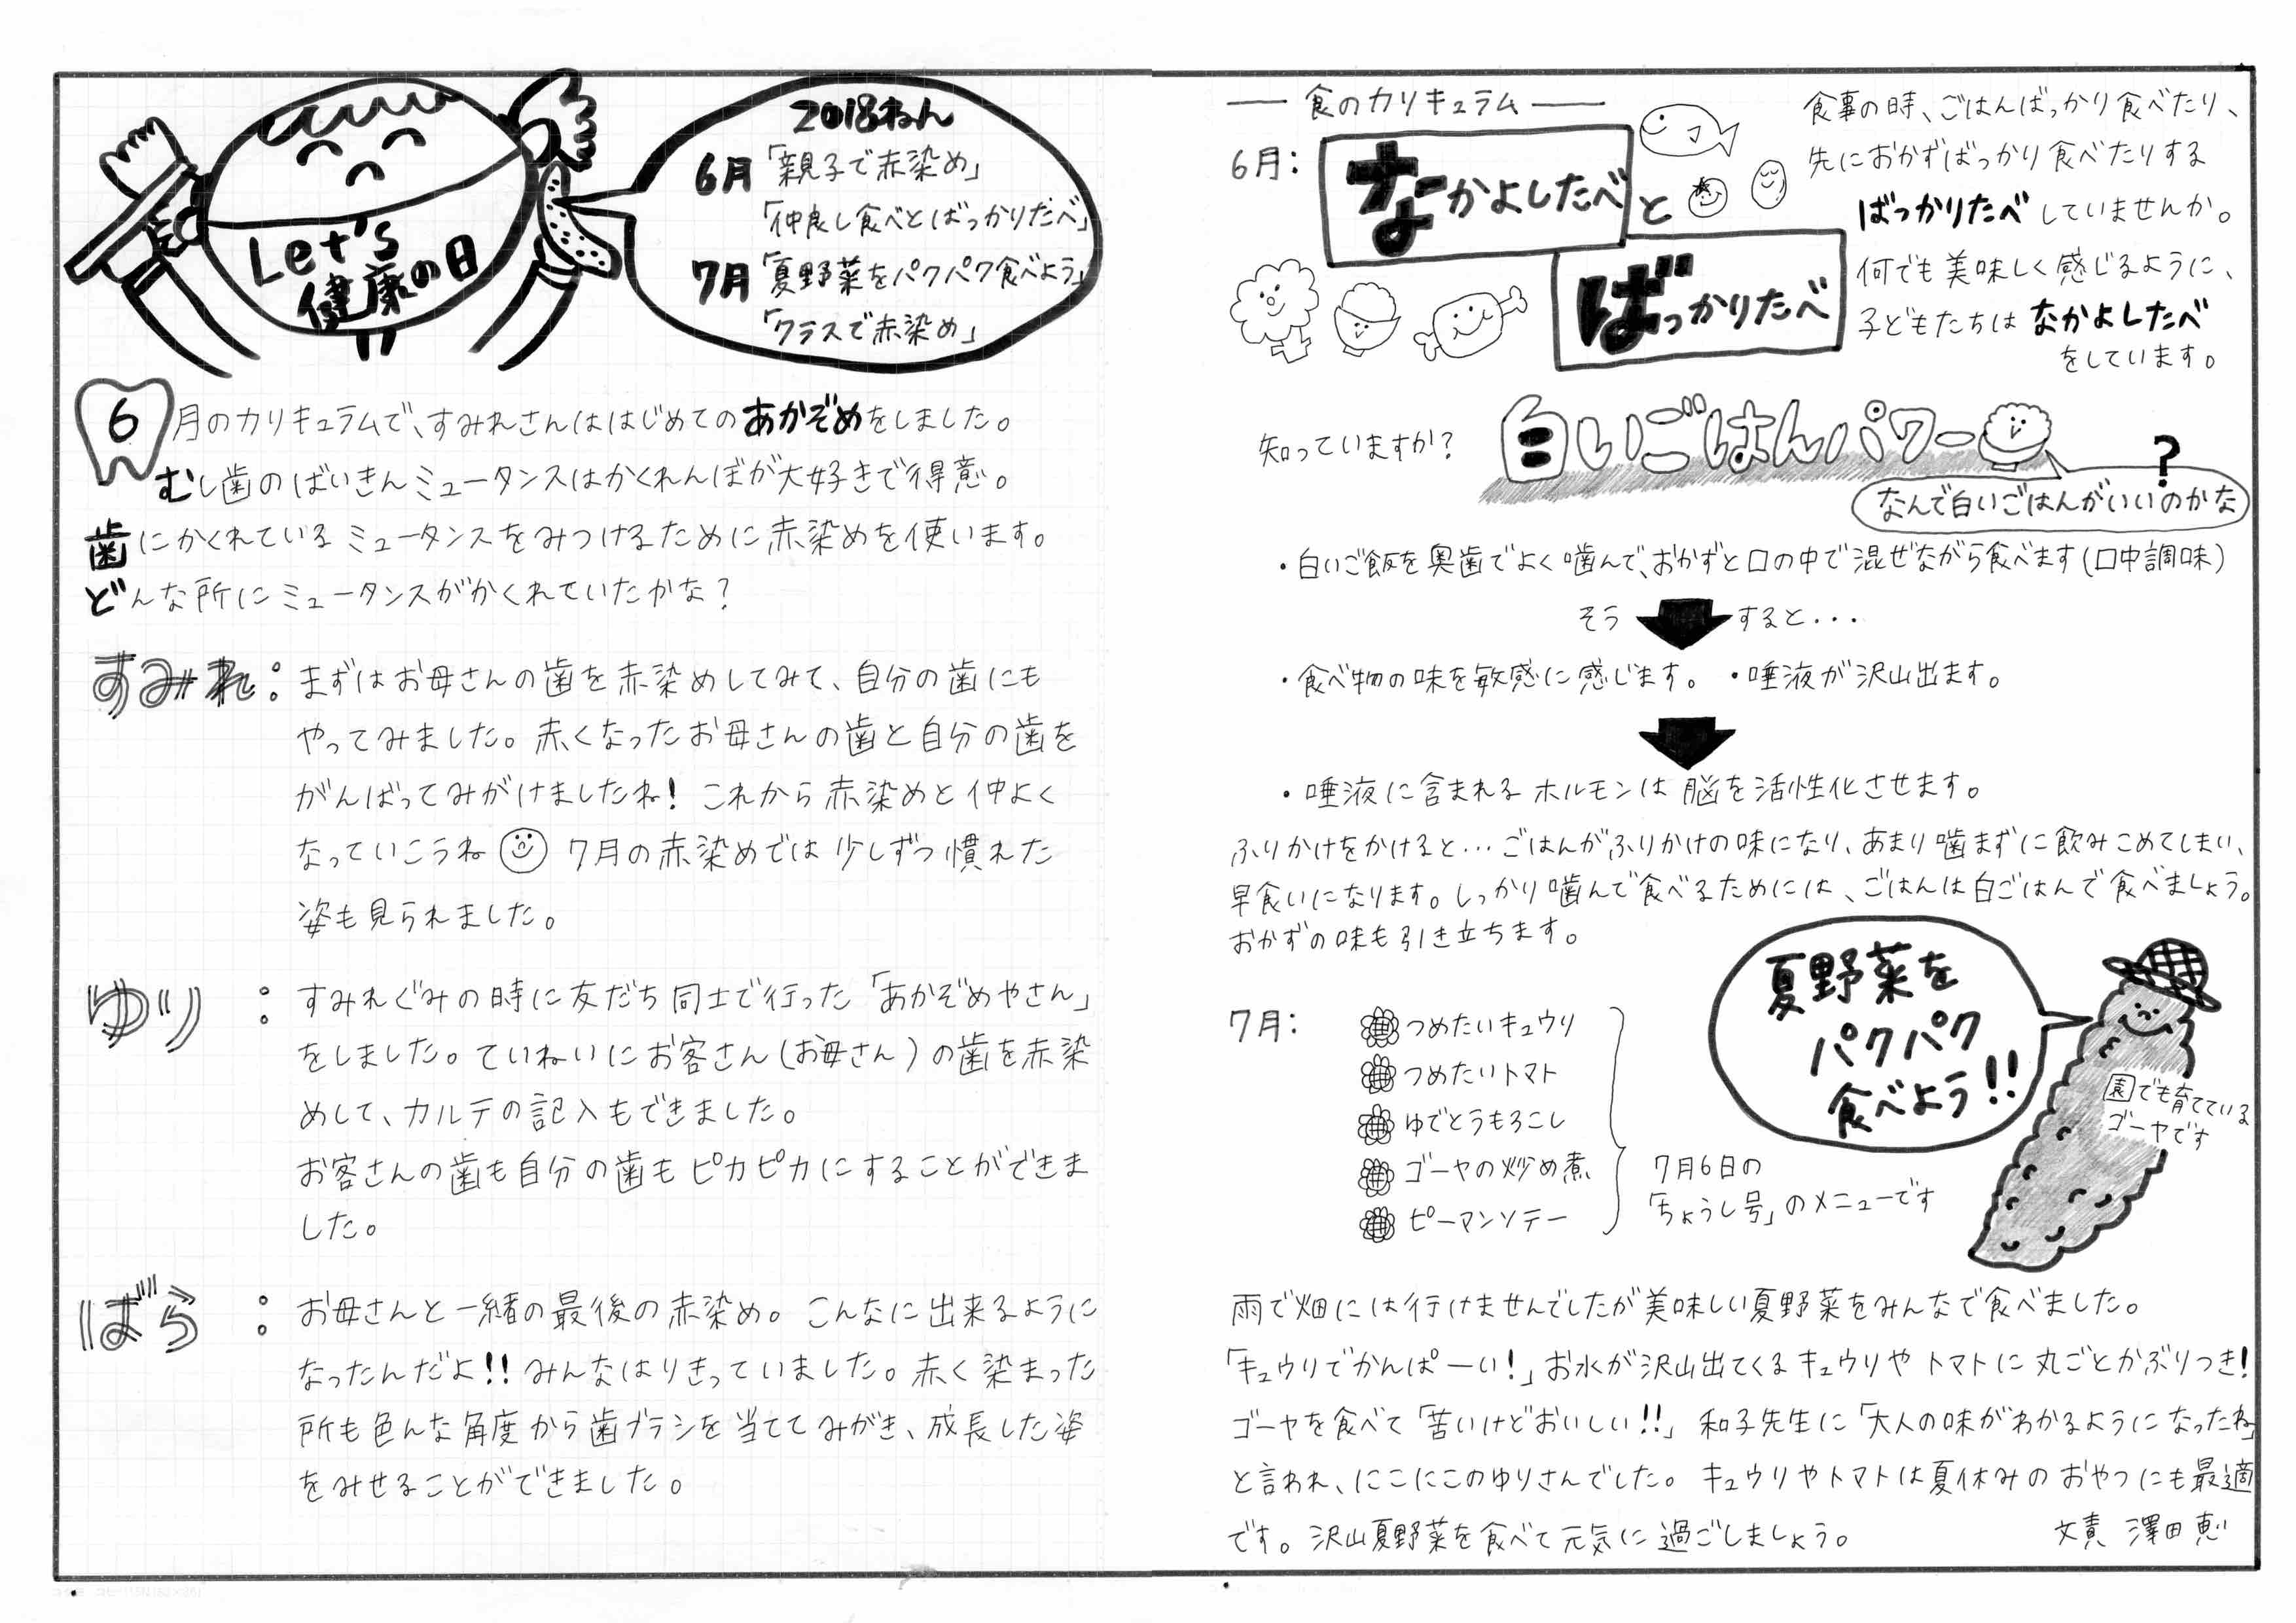 Let's
健康の日
2018ねん
6月「親子で赤染め」
「仲良し食べとばっかりたべ」
7月「夏野菜をパクパク食べよう」
「クラスで赤染め」
6月のカリキュラムで、すみれさんははじめてのあかぞめをしました。
むし歯のばいきんミュータンスはかくれんぼが大好きで得意。
歯にかくれているミュータンスをみつけるために赤染めを使います。
どんな所にミュータンスがかくれていたかな？
すみれ：まずはお母さんの歯を赤染めしてみて、自分の歯にも
やってみました。赤くなったお母さんの歯と自分の歯を
がんばってみがけましたね！これから赤染めと仲よく
なっていこうね 7月の赤染めでは少しずつ慣れた
姿も見られました。
ゆり：すみれぐみの時に友だち同士で行った「あかぞめやさん」
をしました。ていねいにお客さん(お母さん)の歯を赤染
めして、カルテの記入もできました。
お客さんの歯も自分の歯もピカピカにすることができま
した。
ばら：お母さんと一緒の最後の赤染め。こんなに出来るように
なったんだよ!!みんなはりきっていました。赤く染まった
所も色んな角度から歯ブラシを当ててみがき、成長した姿
をみせることができました。
食のカリキュラム
6月：
なかよしたべ
と
ばっかりたべ
食事の時、ごはんばっかり食べたり、
先におかずばっかり食べたりする
ばっかりたべしていませんか。
何でも美味しく感じるように、
子どもたちはなかよしたべ
をしています。
知っていますか？
白いごはんパワー
なんで白いごはんがいいのかな?
・白いご飯を奥歯でよく噛んで、おかずと口の中で混ぜながら食べます(口中調味)
そうすると...
・食べ物の味を敏感に感じます。・唾液が沢山出ます。
・唾液に含まれるホルモンは脳を活性化させます。
ふりかけをかけると...ごはんがふりかけの味になり、あまり噛まずに飲みこめてしまい、
早食いになります。しっかり噛んで食べるためには、ごはんは白ごはんで食べましょう。
おかずの味も引き立ちます。
7月：
つめたいキュウリ
つめたいトマト
ゆでとうもろこし
ゴーヤの炒め煮
ピーマンソテー
7月6日の
「ちょうし号」のメニューです
夏野菜を
パクパク
食べよう!!
園でも育てている
ゴーヤです
雨で畑には行けませんでしたが美味しい夏野菜をみんなで食べました。
「キュウリでかんぱーい！」お水が沢山出てくるキュウリやトマトに丸ごとかぶりつき！
ゴーヤを食べて「苦いけどおいしい!!」和子先生に「大人の味がわかるようになったね」
と言われ、にこにこのゆりさんでした。キュウリやトマトは夏休みのおやつにも最適
です。沢山夏野菜を食べて元気に過ごしましょう。
文責 澤田恵